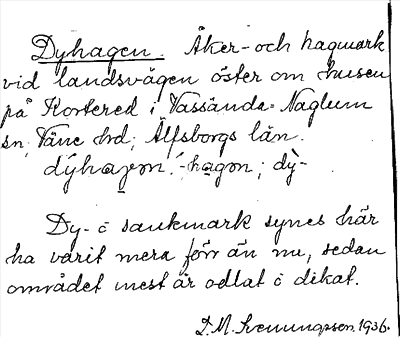 Dyhagen. Åker- och hagmark
vid landsvägen öster om husen
på Kortered i Vassända-Naglum
sn, Väne hd, Älfsborgs län.
dýhaꞬɷn. -hagɷn; dỳ-
Dy- o sankmark synes här
ha varit mera förr än nu, sedan
området mest är odlat o dikat.
D. M. Svenungsson. 1936.